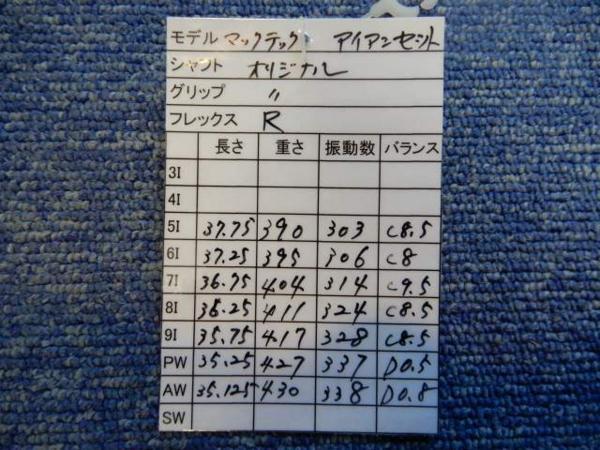 モデル マックテック アイアンセット
シャフト オリジナル
グリップ 〃
フレックス R
長さ 重さ 振動数 バランス
3I
4I
5I 37.75 390 303 C8.5
6I 37.25 395 306 C8
7I 36.75 404 314 C9.5
8I 36.25 411 324 C8.5
9I 35.75 417 328 C8.5
PW 35.25 427 337 D0.5
AW 35.125 430 338 D0.8
SW